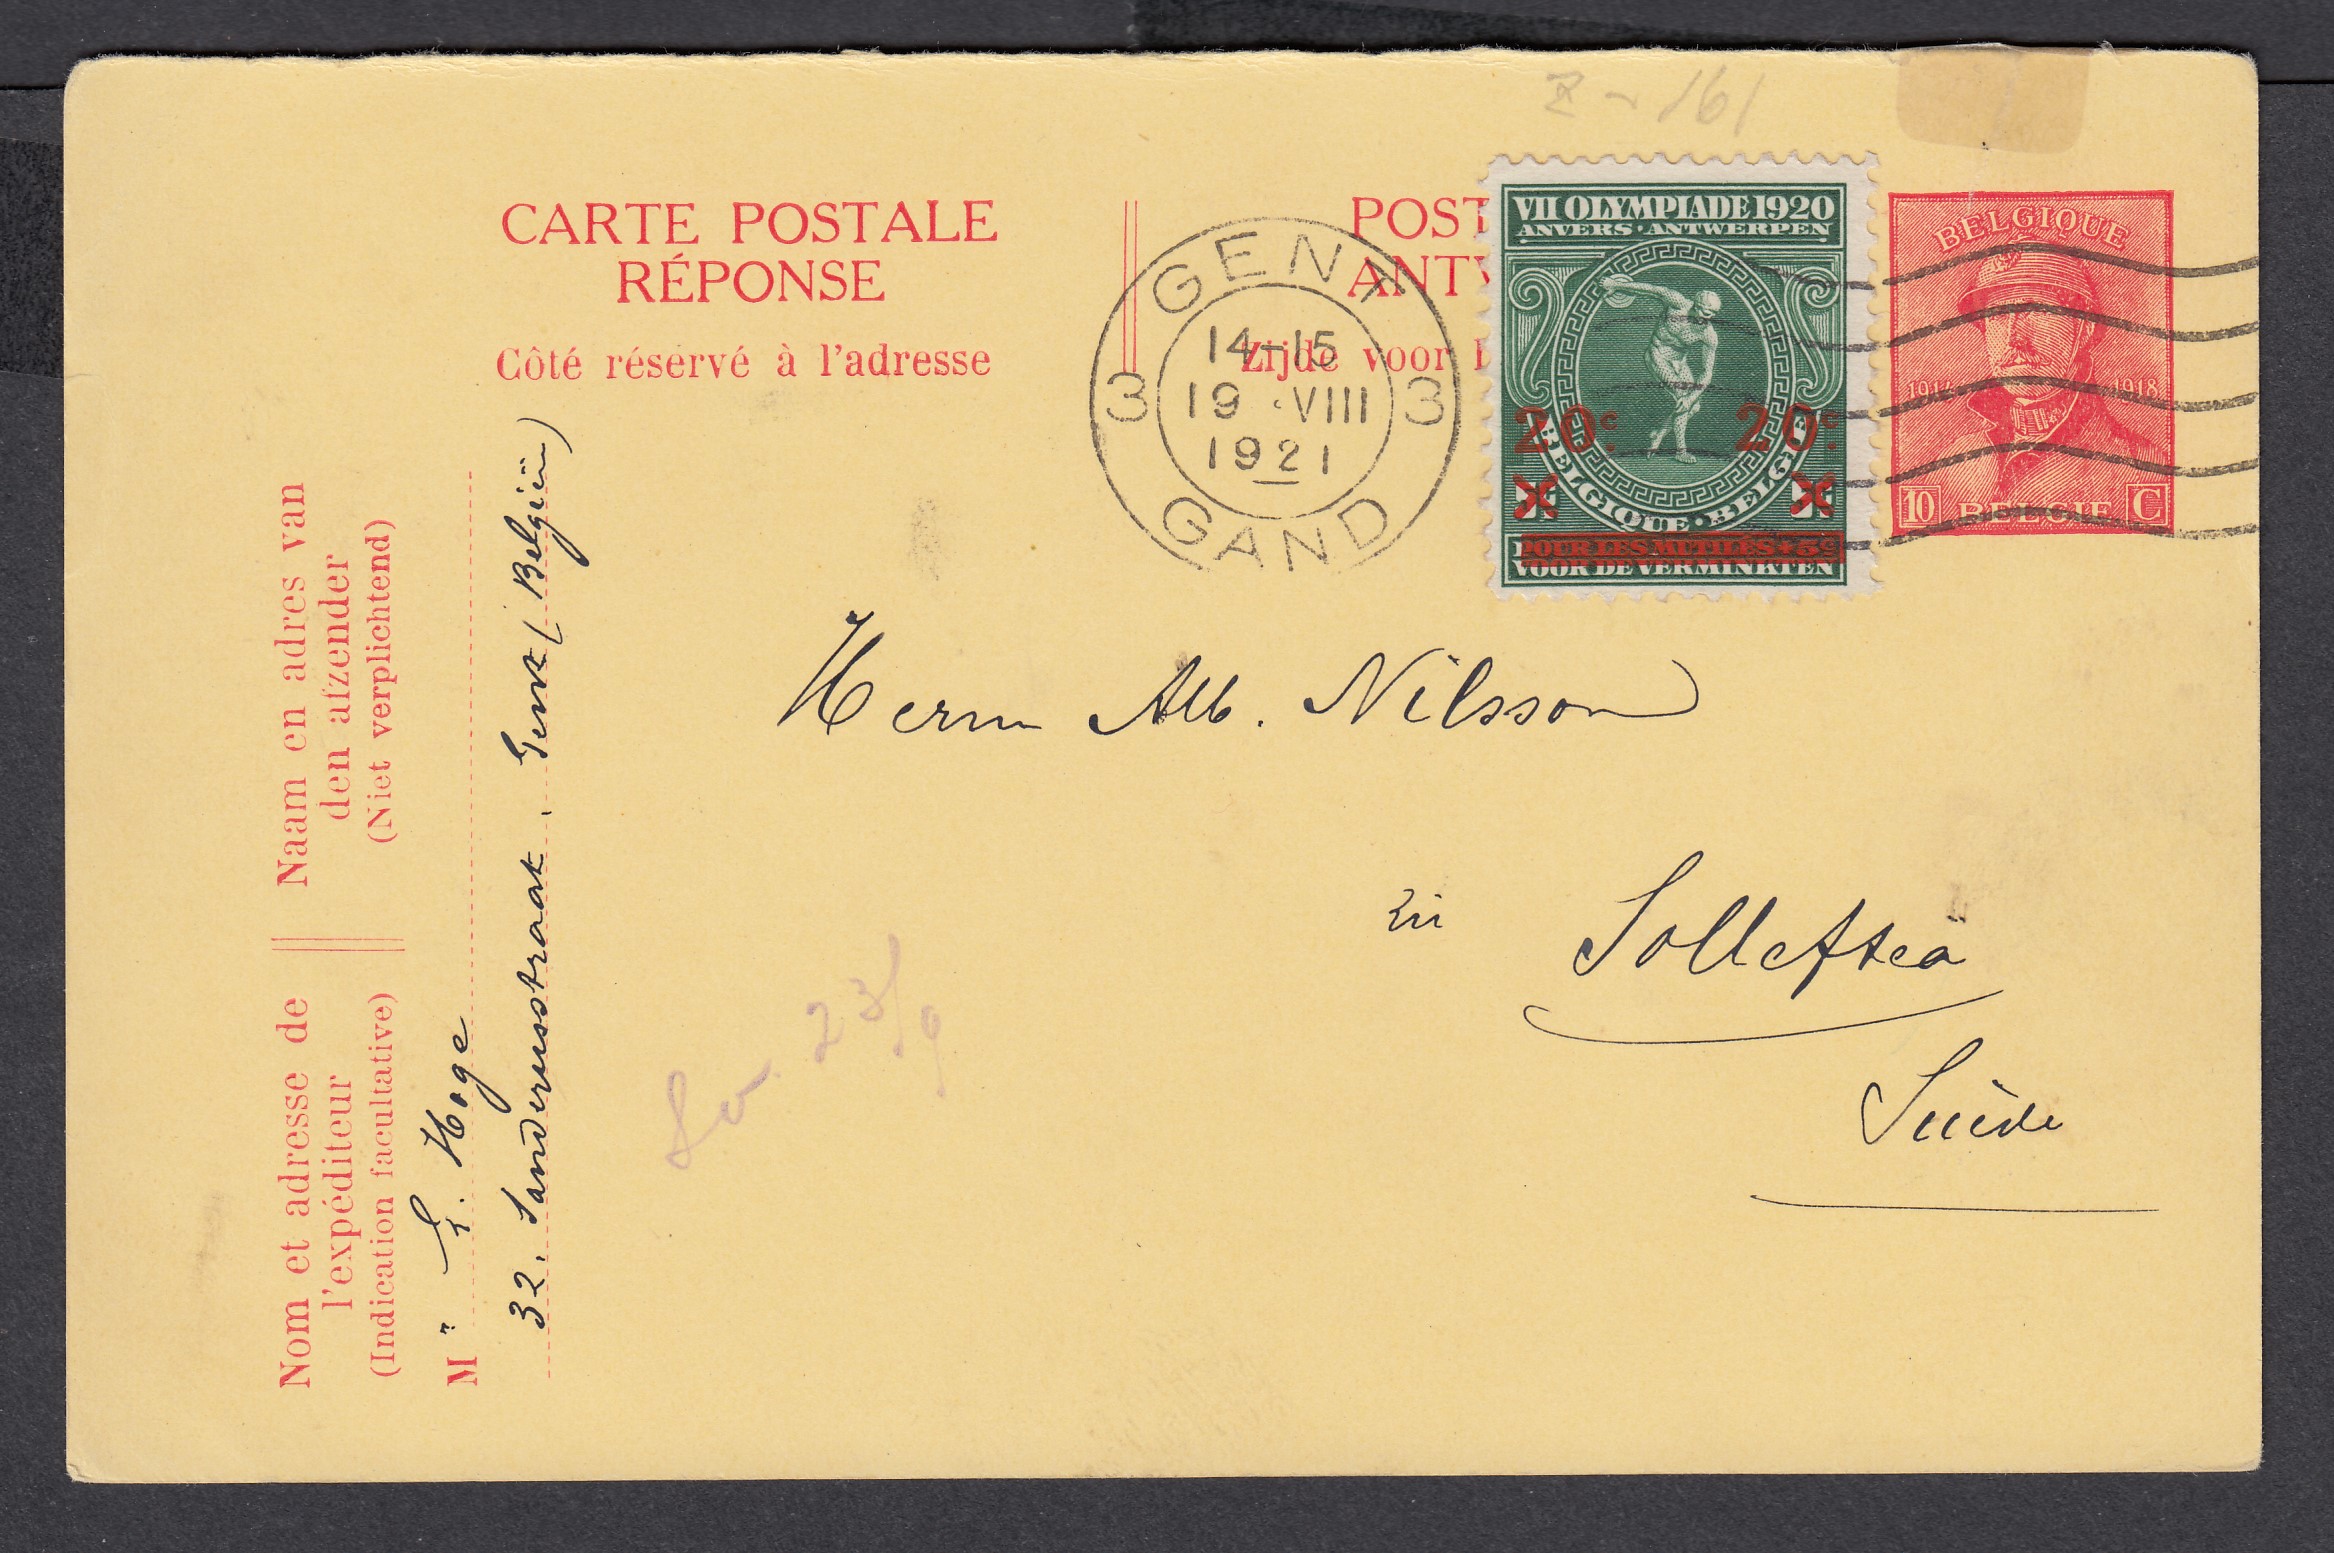 Z-161
CARTE POSTALE
RÉPONSE
Côté réservé à l'adresse
POST
ANT
Zijde voor
GENT
14-15
19 VIII
1921
3 3
GAND
VII OLYMPIADE 1920
ANVERS · ANTWERPEN
20c. 20c.
BELGIQUE · BELGIË
POUR LES MUTILÉS + 5c
VOOR DE VERMINKTEN
BELGIQUE
1914 1918
10 BELGIE C
Naam en adres van
den afzender
(Niet verplichtend)
Nom et adresse de
l'expéditeur
(Indication facultative)
M r E. Hoge
32, Sanderusstraat, Gent (Belgiën)
Herrn Alb. Nilsson
in
Sollefteå
Suède
23/9